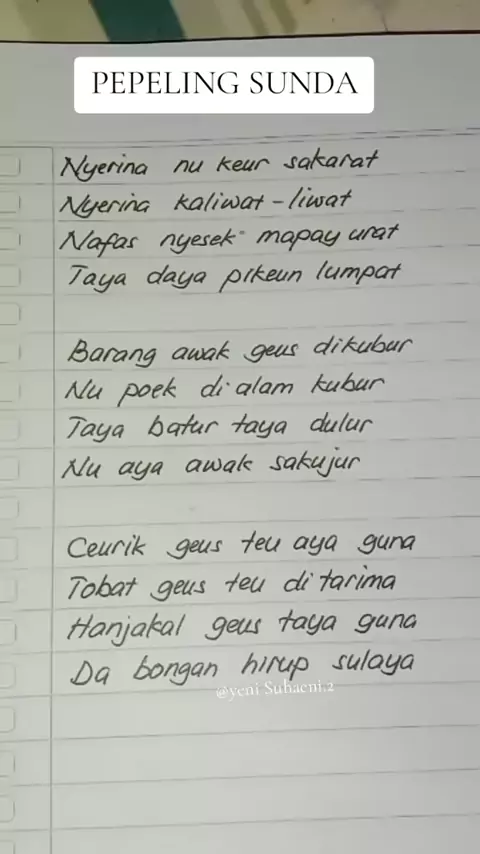 PEPELING SUNDA
Nyerina nu keur sakarat
Nyerina kaliwat-liwat
Nafas nyesek mapay urat
Taya daya pikeun lumpat
Barang awak geus dikubur
Nu poek di alam kubur
Taya batur taya dulur
Nu aya awak sakujur
Ceurik geus teu aya guna
Tobat geus teu di tarima
Hanjakal geus taya guna
Da bongan hirup sulaya
@yeni Suhaeni.2